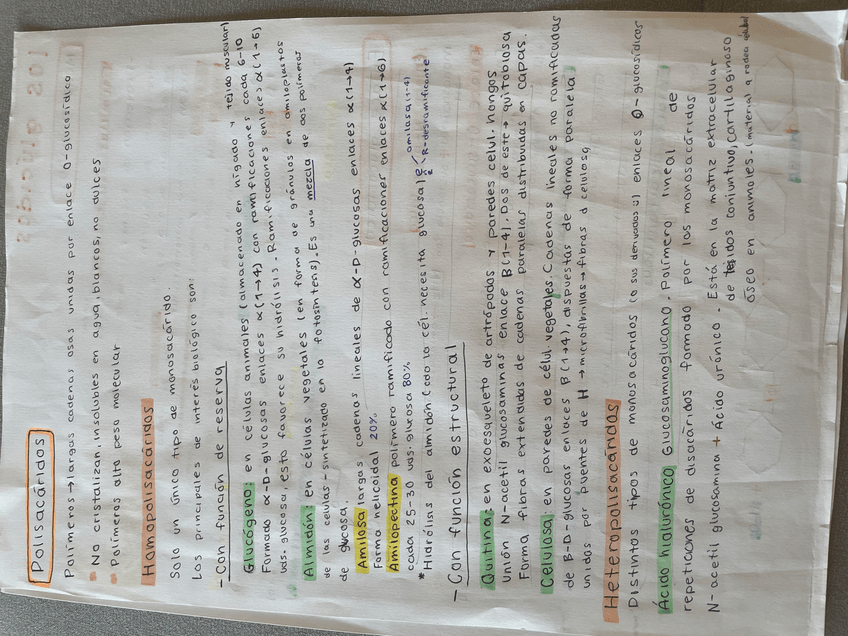 Polisacáridos
Polímeros → largas cadenas osas unidas por enlace O-glucosídico
No cristalizan, insolubles en agua, blancos, no dulces
Polímeros alto peso molecular
Homopolisacáridos
Solo un único tipo de monosacárido.
Los principales de interés biológico son:
- Con función de reserva
Glucógeno: en células animales (almacenado en hígado y tejido muscular)
Formado α-D-glucosas enlaces α(1→4) con ramificaciones cada 6-10
uds. glucosa, esto favorece su hidrólisis. Ramificaciones enlaces α(1→6)
Almidón: en células vegetales (en forma de gránulos en amiloplastos
de las células - sintetizado en la fotosíntesis). Es una mezcla de dos polímeros
de glucosa.
Amilosa largas cadenas lineales de α-D-glucosas enlaces α(1→4)
forma helicoidal 20%
Amilopectina polímero ramificado con ramificaciones enlaces α(1→6)
cada 25-30 uds. glucosa 80%
* Hidrólisis del almidón (cdo la cél. necesita glucosa) amilasa (1-4)
R-desramificante
- Con función estructural
Quitina: en exoesqueleto de artrópodos y paredes celul. hongos
Unión N-acetil glucosaminas enlace B(1-4). Dos de este → quitobiosa
Forma fibras extendidas de cadenas paralelas distribuidas en capas.
Celulosa: en paredes de célul. vegetales. Cadenas lineales no ramificadas
de B-D-glucosas enlaces β(1→4), dispuestas de forma paralela
unidas por puentes de H → microfibrillas → fibras d celulosa
Heteropolisacáridos
Distintos tipos de monosacáridos (o sus derivados) enlaces O-glucosídicos
Ácido hialurónico Glucosaminoglucano. Polímero lineal de
repeticiones de disacáridos formado por los monosacáridos
N-acetil glucosamina + Ácido urónico. Está en la matriz extracelular
de tejidos conjuntivo, cartilaginoso
óseo en animales. (material q rodea